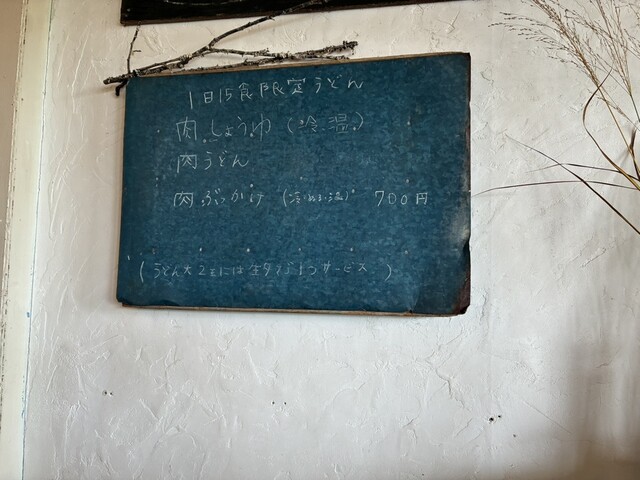 1日15食限定うどん
肉しょうゆ (冷.温)
肉うどん
肉ぶっかけ (冷.ぬる.温) 700円
(うどん大2玉には生タマゴ1つサービス)